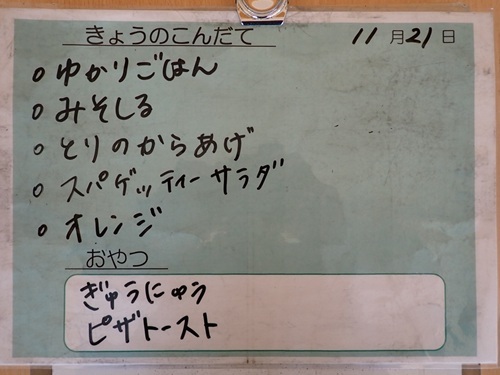 きょうのこんだて 11月21日
○ ゆかりごはん
○ みそしる
○ とりのからあげ
○ スパゲッティーサラダ
○ オレンジ
おやつ
ぎゅうにゅう
ピザトースト